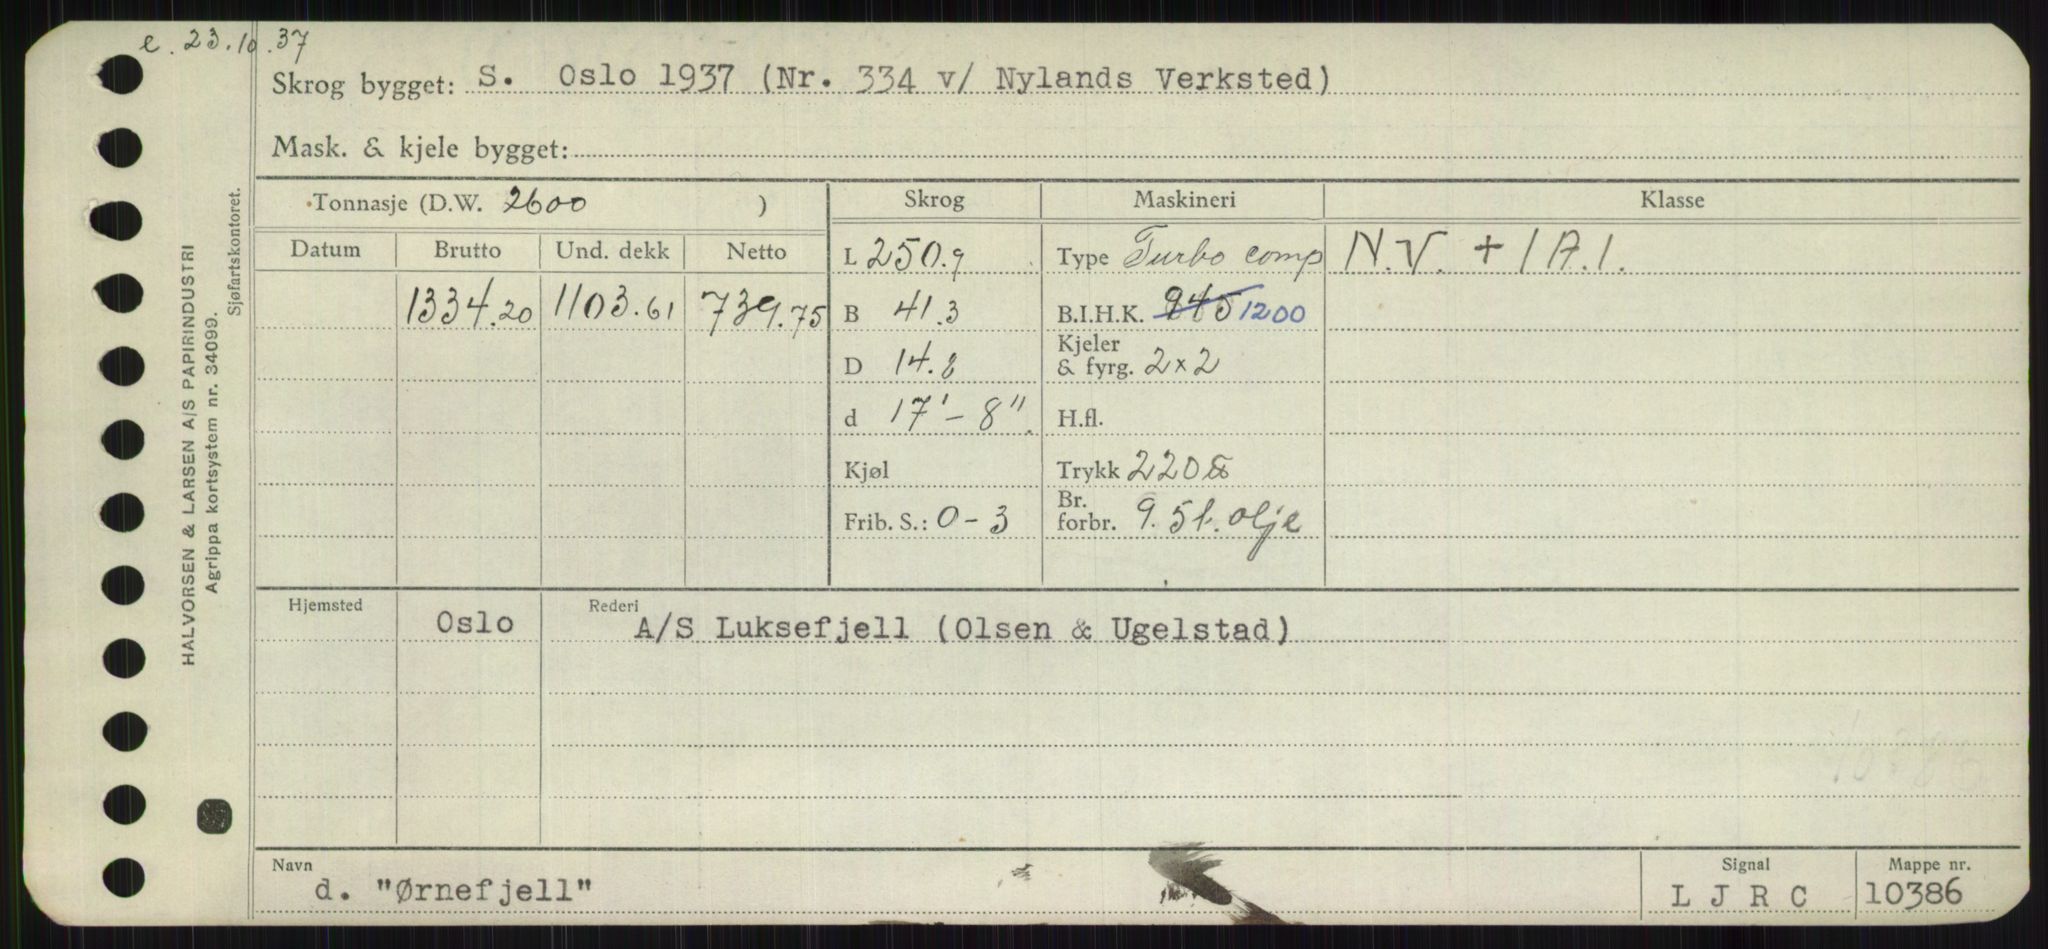 e. 23.10.37
Skrog bygget: S. Oslo 1937 (Nr. 334 v/ Nylands Verksted)
Mask. & kjele bygget:
Tonnasje (D.W. 2600 ) Skrog Maskineri Klasse
Datum Brutto Und. dekk Netto L 250.9 Type Turbo comp N.V. + 1A.1.
1334.20 1103.61 739.75 B 41.3 B.I.H.K. 945 1200
D 14.8 Kjeler & fyrg. 2x2
d 17'-8". H.fl.
Kjøl Trykk 220
Frib. S.: 0-3 Br. forbr. 9.5t. olje
Hjemsted Rederi
Oslo A/S Luksefjell (Olsen & Ugelstad)
Navn Signal Mappe nr.
d. "Ørnefjell" L J R C 10386
HALVORSEN & LARSEN A/S PAPIRINDUSTRI
Agrippa kortsystem nr. 34099.
Sjøfartskontoret.